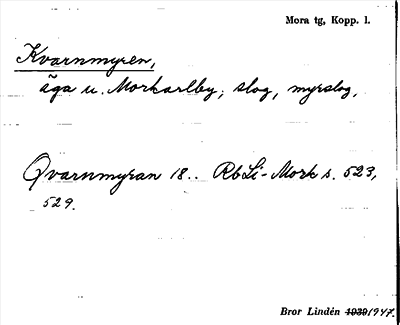 Mora tg, Kopp. l.
Kvarnmyren,
äga u. Morkarlby; slog, myrslog,
Qvarnmyran 18.. RbLi-Mork s. 523,
529.
Bror Lindén 1939 1947.